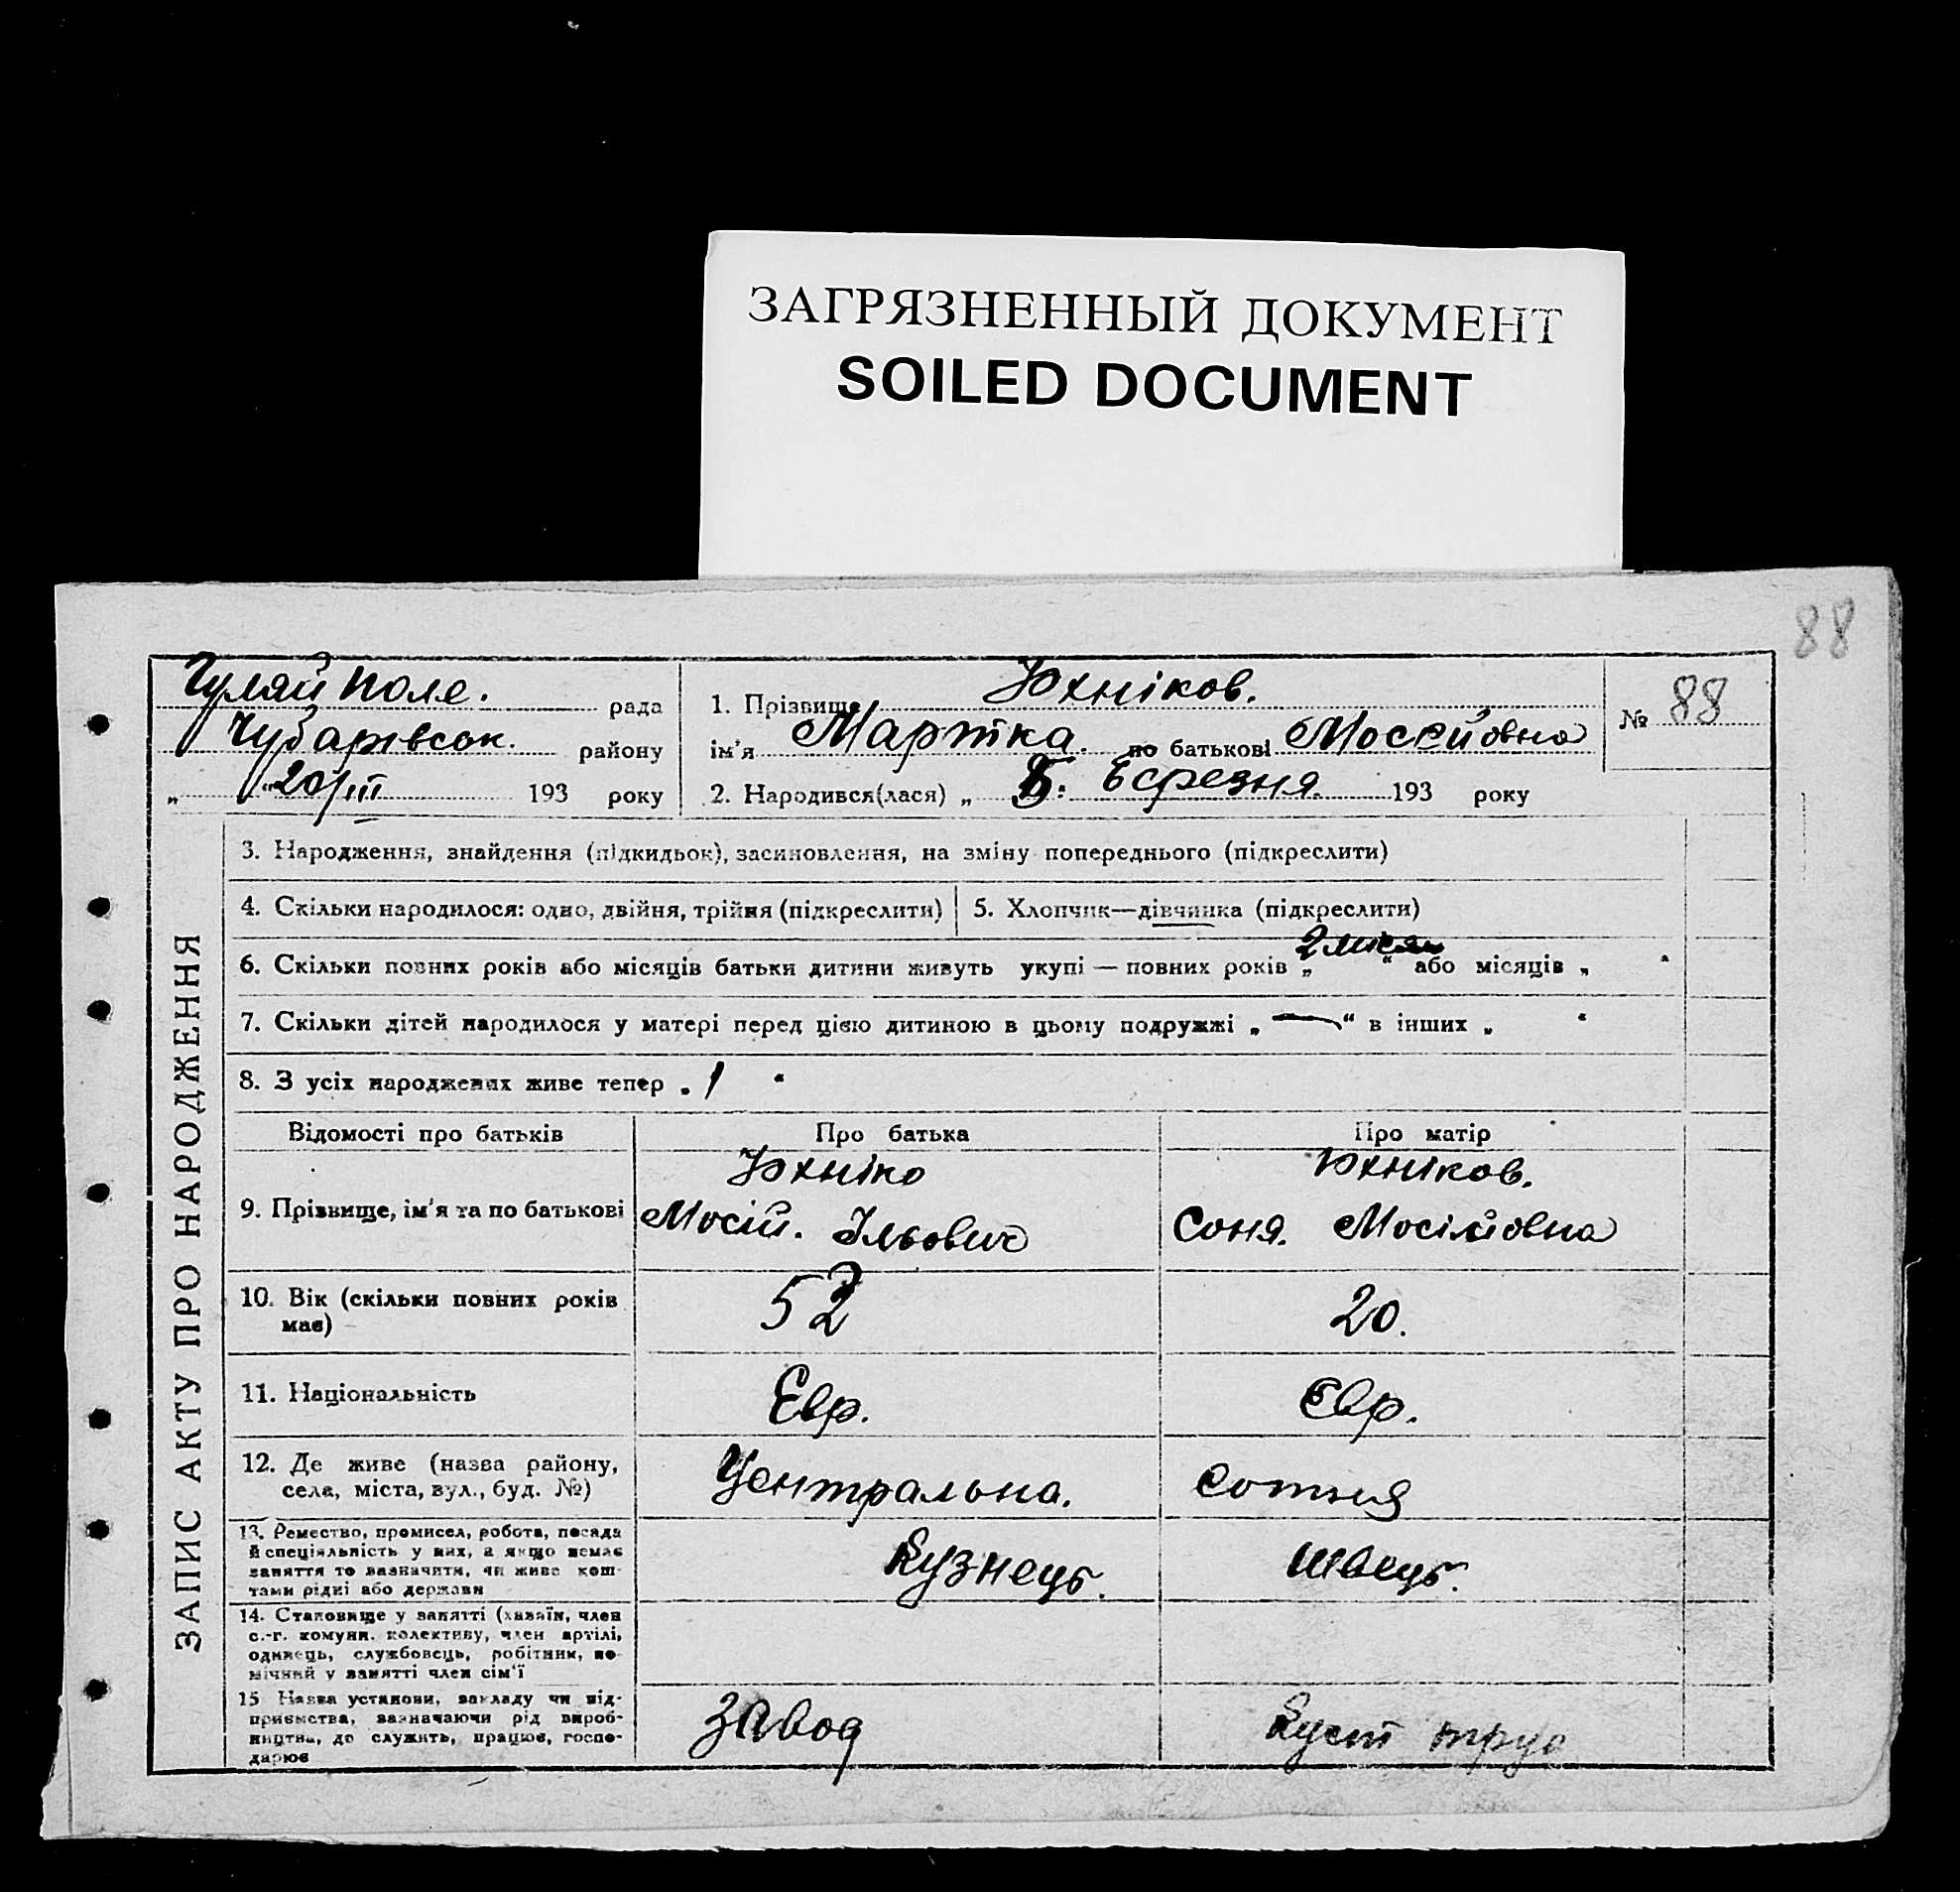 ЗАГРЯЗНЕННЫЙ ДОКУМЕНТ
SOILED DOCUMENT
88
Гуляй Поле. рада
Чубарівськ. району
„ 20/III 193 року
1. Прізвище Юхніков.
ім'я Мартка. по батькові Мосейовна
№ 88
2. Народився(лася) „ березня. 193 року
ЗАПИС АКТУ ПРО НАРОДЖЕННЯ
3. Народження, знайдення (підкидьок), засиновлення, на зміну попереднього (підкреслити)
4. Скільки народилося: одно, двійня, трійня (підкреслити)
5. Хлопчик—дівчинка (підкреслити)
6. Скільки повних років або місяців батьки дитини живуть укупі — повних років „ 2 “ або місяців „ “
7. Скільки дітей народилося у матері перед цією дитиною в цьому подружжі „ — “ в інших „ “
8. З усіх народжених живе тепер „ 1 “
Відомості про батьків
Про батька
Про матір
9. Прізвище, ім'я та по батькові
Юхніко
Мосій. Ільович
Юхніков.
Соня. Мосійовна
10. Вік (скільки повних років
має)
52
20.
11. Національність
Евр.
Євр.
12. Де живе (назва району,
села, міста, вул., буд. №)
Центральна.
сотня
13. Ремество, промисел, робота, посада
й спеціяльність у них, а якщо немає
заняття то зазначити, чи живе кош-
тами рідні або держави
Кузнець.
швець.
14. Становище у занятті (хазяїн, член
с.-г. комуни, колективу, член артілі,
одинець, службовець, робітник, по-
мічний у занятті член сім'ї
15 Назва установи, закладу чи під-
приємства, зазначаючи рід вироб-
ництва, де служить, працює, госпо-
дарює
Завод
Куст труд